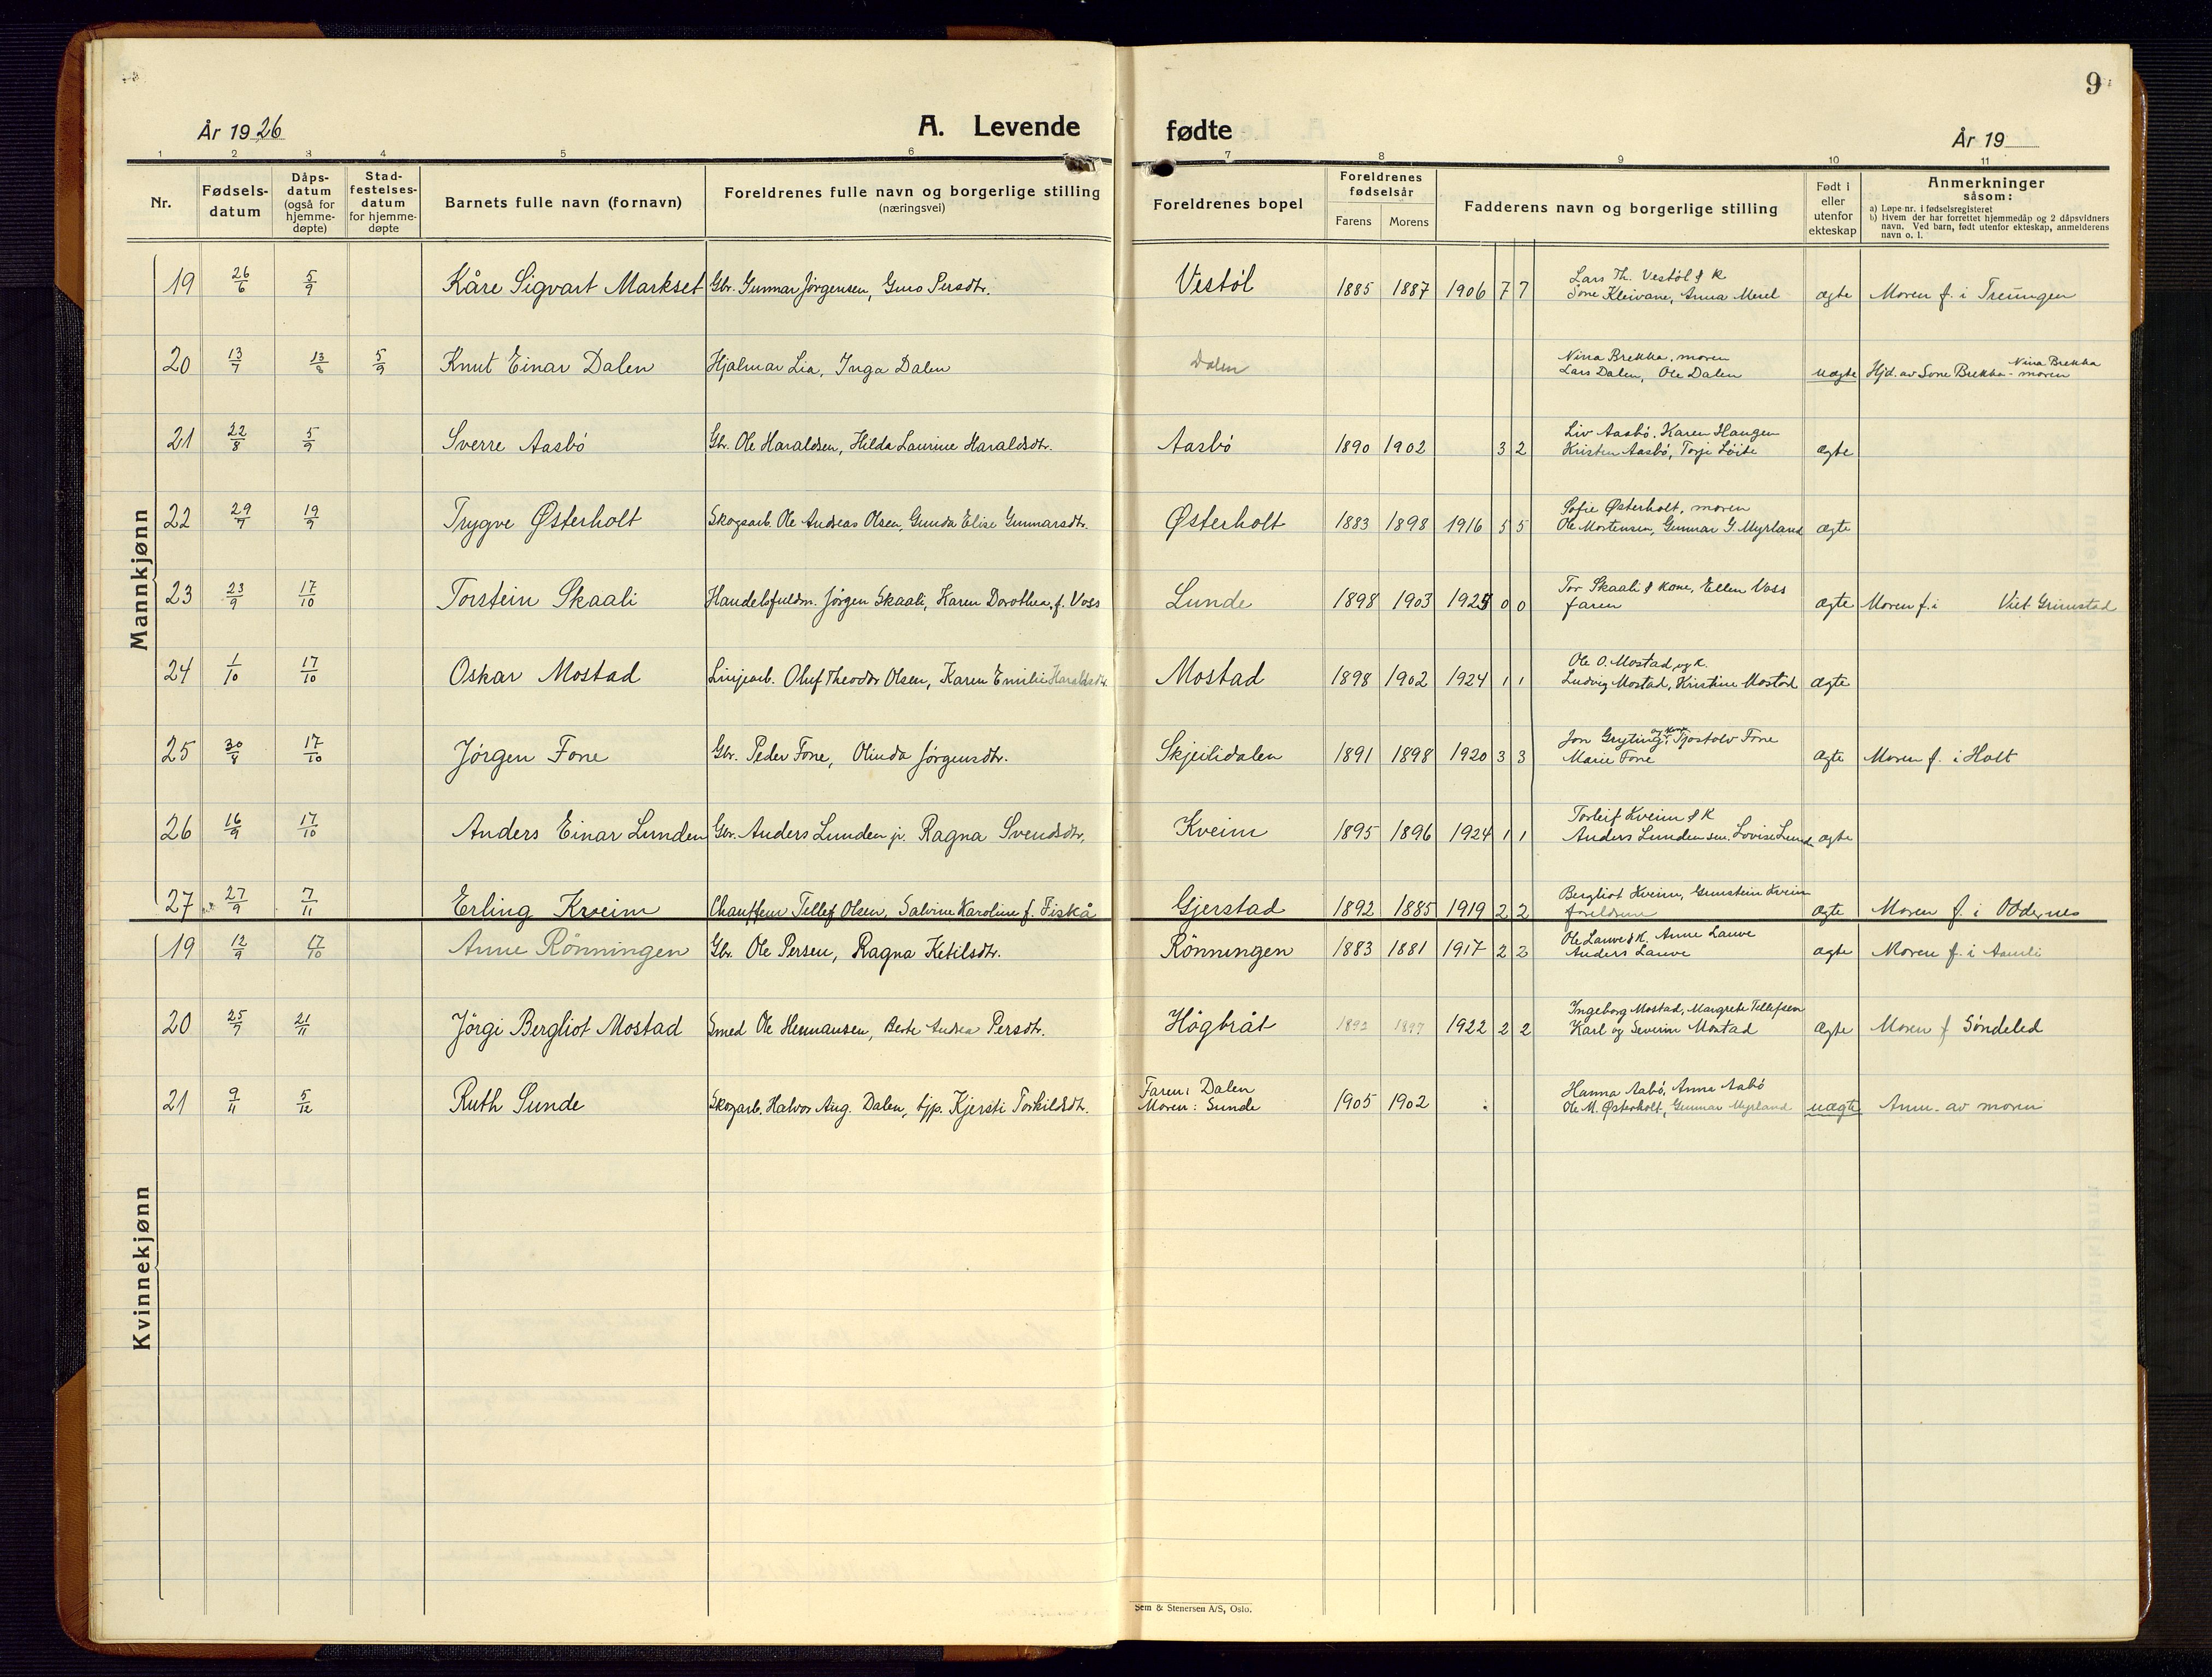 9
År 1926 A. Levende fødte År 19
1 2 3 4 5 6 7 8 9 10 11
Nr. Fødsels-datum Dåps-datum (også for hjemme-døpte) Stad-festelses-datum for hjemme-døpte Barnets fulle navn (fornavn) Foreldrenes fulle navn og borgerlige stilling (næringsvei) Foreldrenes bopel Foreldrenes fødselsår Farens Morens Fadderens navn og borgerlige stilling Født i eller utenfor ekteskap Anmerkninger såsom: a) Løpe nr. i fødselsregisteret b) Hvem der har forrettet hjemmedåp og 2 dåpsvidners navn. Ved barn, født utenfor ekteskap, anmelderens navn o. l.
Mannkjønn
19 26/6 5/9 Kåre Sigvart Markset Gbr. Gunnar Jørgensen, Guro Persdtr. Vestøl 1885 1887 1906 7 7 Lars Th. Vestøl & K Sone Kleivane, Anna Merel ægte Moren f. i Treungen
20 13/7 13/8 5/9 Knut Einar Dalen Hjalmar Lia, Inga Dalen Dalen Nina Brekka, moren Lars Dalen, Ole Dalen uægte Hjd. av Sone Brekka - Nina Brekka moren
21 22/8 5/9 Sverre Aasbö Gbr. Ole Haraldsen, Hilda Laurine Haraldsdtr. Aasbö 1890 1902 3 2 Liv Aasbö, Karen Haugen Kristen Aasbö, Torje Löite ægte
22 29/7 19/9 Trygve Østerholt Skogsarb. Ole Andreas Olsen, Gunda Elise Gunnarsdtr. Østerholt 1883 1898 1916 5 5 Sofie Østerholt, moren Ole Mortensen, Gunnar G. Myrland ægte
23 23/9 17/10 Torstein Skaali Handelsfuldm. Jørgen Skaali, Karen Dorothea, f. Voss Lunde 1898 1903 1925 0 0 Tor Skaali & kone, Ellen Voss faren ægte Moren f. i Grimstad
24 1/10 17/10 Oskar Mostad Linjearb. Oluf Theodor Olsen, Karen Emilie Haraldsdtr. Mostad 1898 1902 1924 1 1 Ole O. Mostad og k. Ludvig Mostad, Kristine Mostad ægte
25 30/8 17/10 Jörgen Fone Gbr. Peder Fone, Olinda Jörgensdtr. Skjeilidalen 1891 1898 1920 3 3 Jon Gryting og kone, Tjostolv Fone Marie Fone ægte Moren f. i Holt
26 16/9 17/10 Anders Einar Lunden Gbr. Anders Lunden jr. Ragna Svendsdtr. Kveim 1895 1896 1924 1 1 Torleif Kveim & K Anders Lunden sen. Lovise Lunde ægte
27 27/9 7/11 Erling Kveim Chauffeur Tellef Olsen, Salvine Karoline f. Fiskå Gjerstad 1892 1885 1919 2 2 Bergliot Kveim, Grunstein Kveim foreldrene ægte Moren f. i Oddernes
Kvinnekjønn
19 12/9 17/10 Anne Rönningen Gbr. Ole Persen, Ragna Ketilsdtr. Rönningen 1883 1881 1917 2 2 Ole Lauve & K. Anne Lauve Anders Lauve ægte Moren f. i Aamli
20 25/7 21/11 Jörgi Bergliot Mostad Smed Ole Hermansen, Berte Andrea Persdtr. Högbråt 1892 1897 1922 2 2 Ingeborg Mostad, Margrete Tellefsen Karl og Severin Mostad ægte Moren f Söndeled
21 9/11 5/12 Ruth Sunde Skogarb. Halvor Aug. Dalen, tjp. Kjersti Torkildsdtr. Faren: Dalen Moren: Sunde 1905 1902 Hanna Aabö, Anna Aabö Ole M. Østerholt, Gunnar Myrland uægte Anm. av moren
Sem & Stenersen A/S, Oslo.